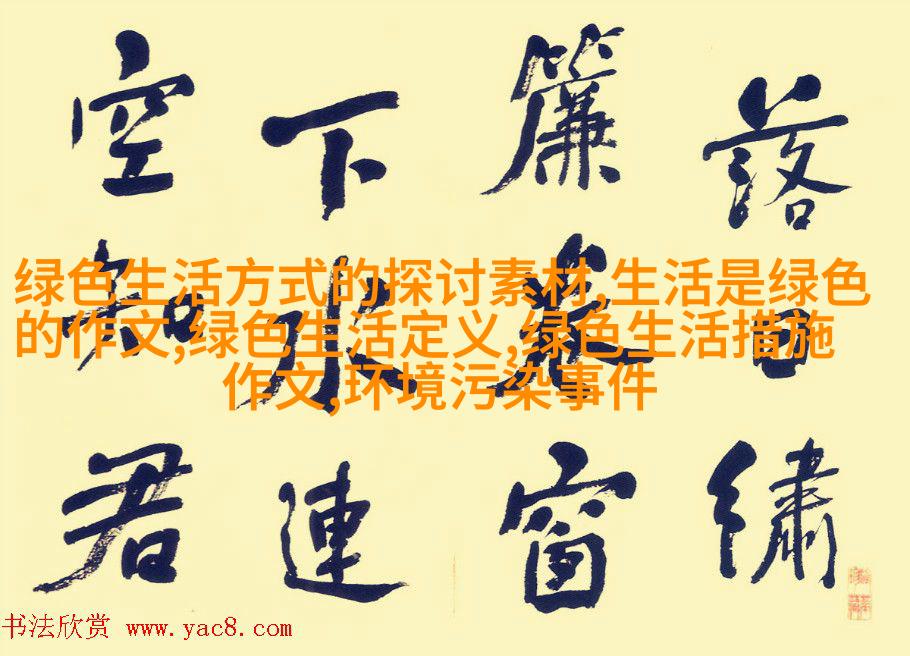 落日繡
簾卷窗
下水連
空知君
绿色生活方式的探讨素材,生活是绿色
的作文,绿色生活定义,绿色生活措施
作文,环境污染事件
书法欣赏 www.yac8.com